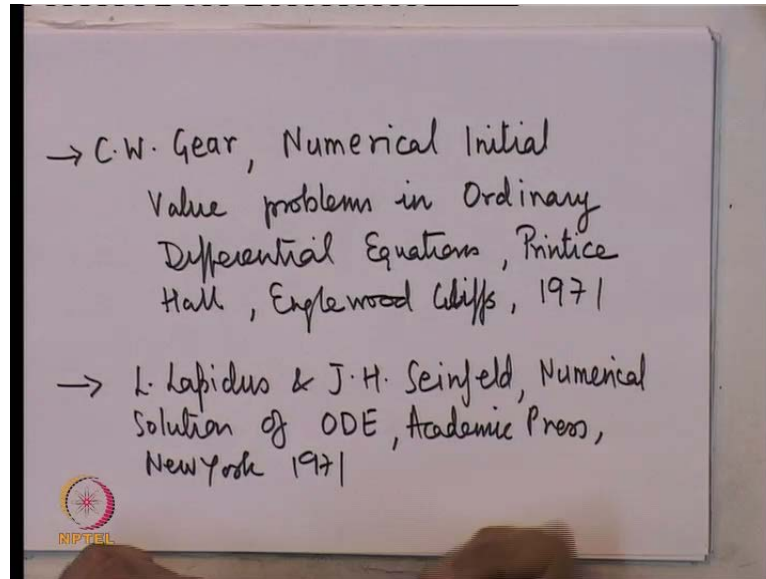 → C.W. Gear, Numerical Initial
Value problems in Ordinary
Differential Equations, Printice
Hall, Englewood Cliffs, 1971
→ L. Lapidus & J.H. Seinfeld, Numerical
Solution of ODE, Academic Press,
New York 1971
NPTEL